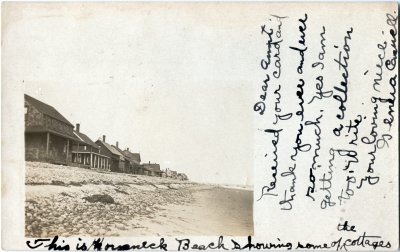 Dear Aunt.
Received your card and
thank you ever and ever
so much. Yes I am
getting a collection
too. Write.
Your loving niece
This is Horseneck Beach showing some of the cottages